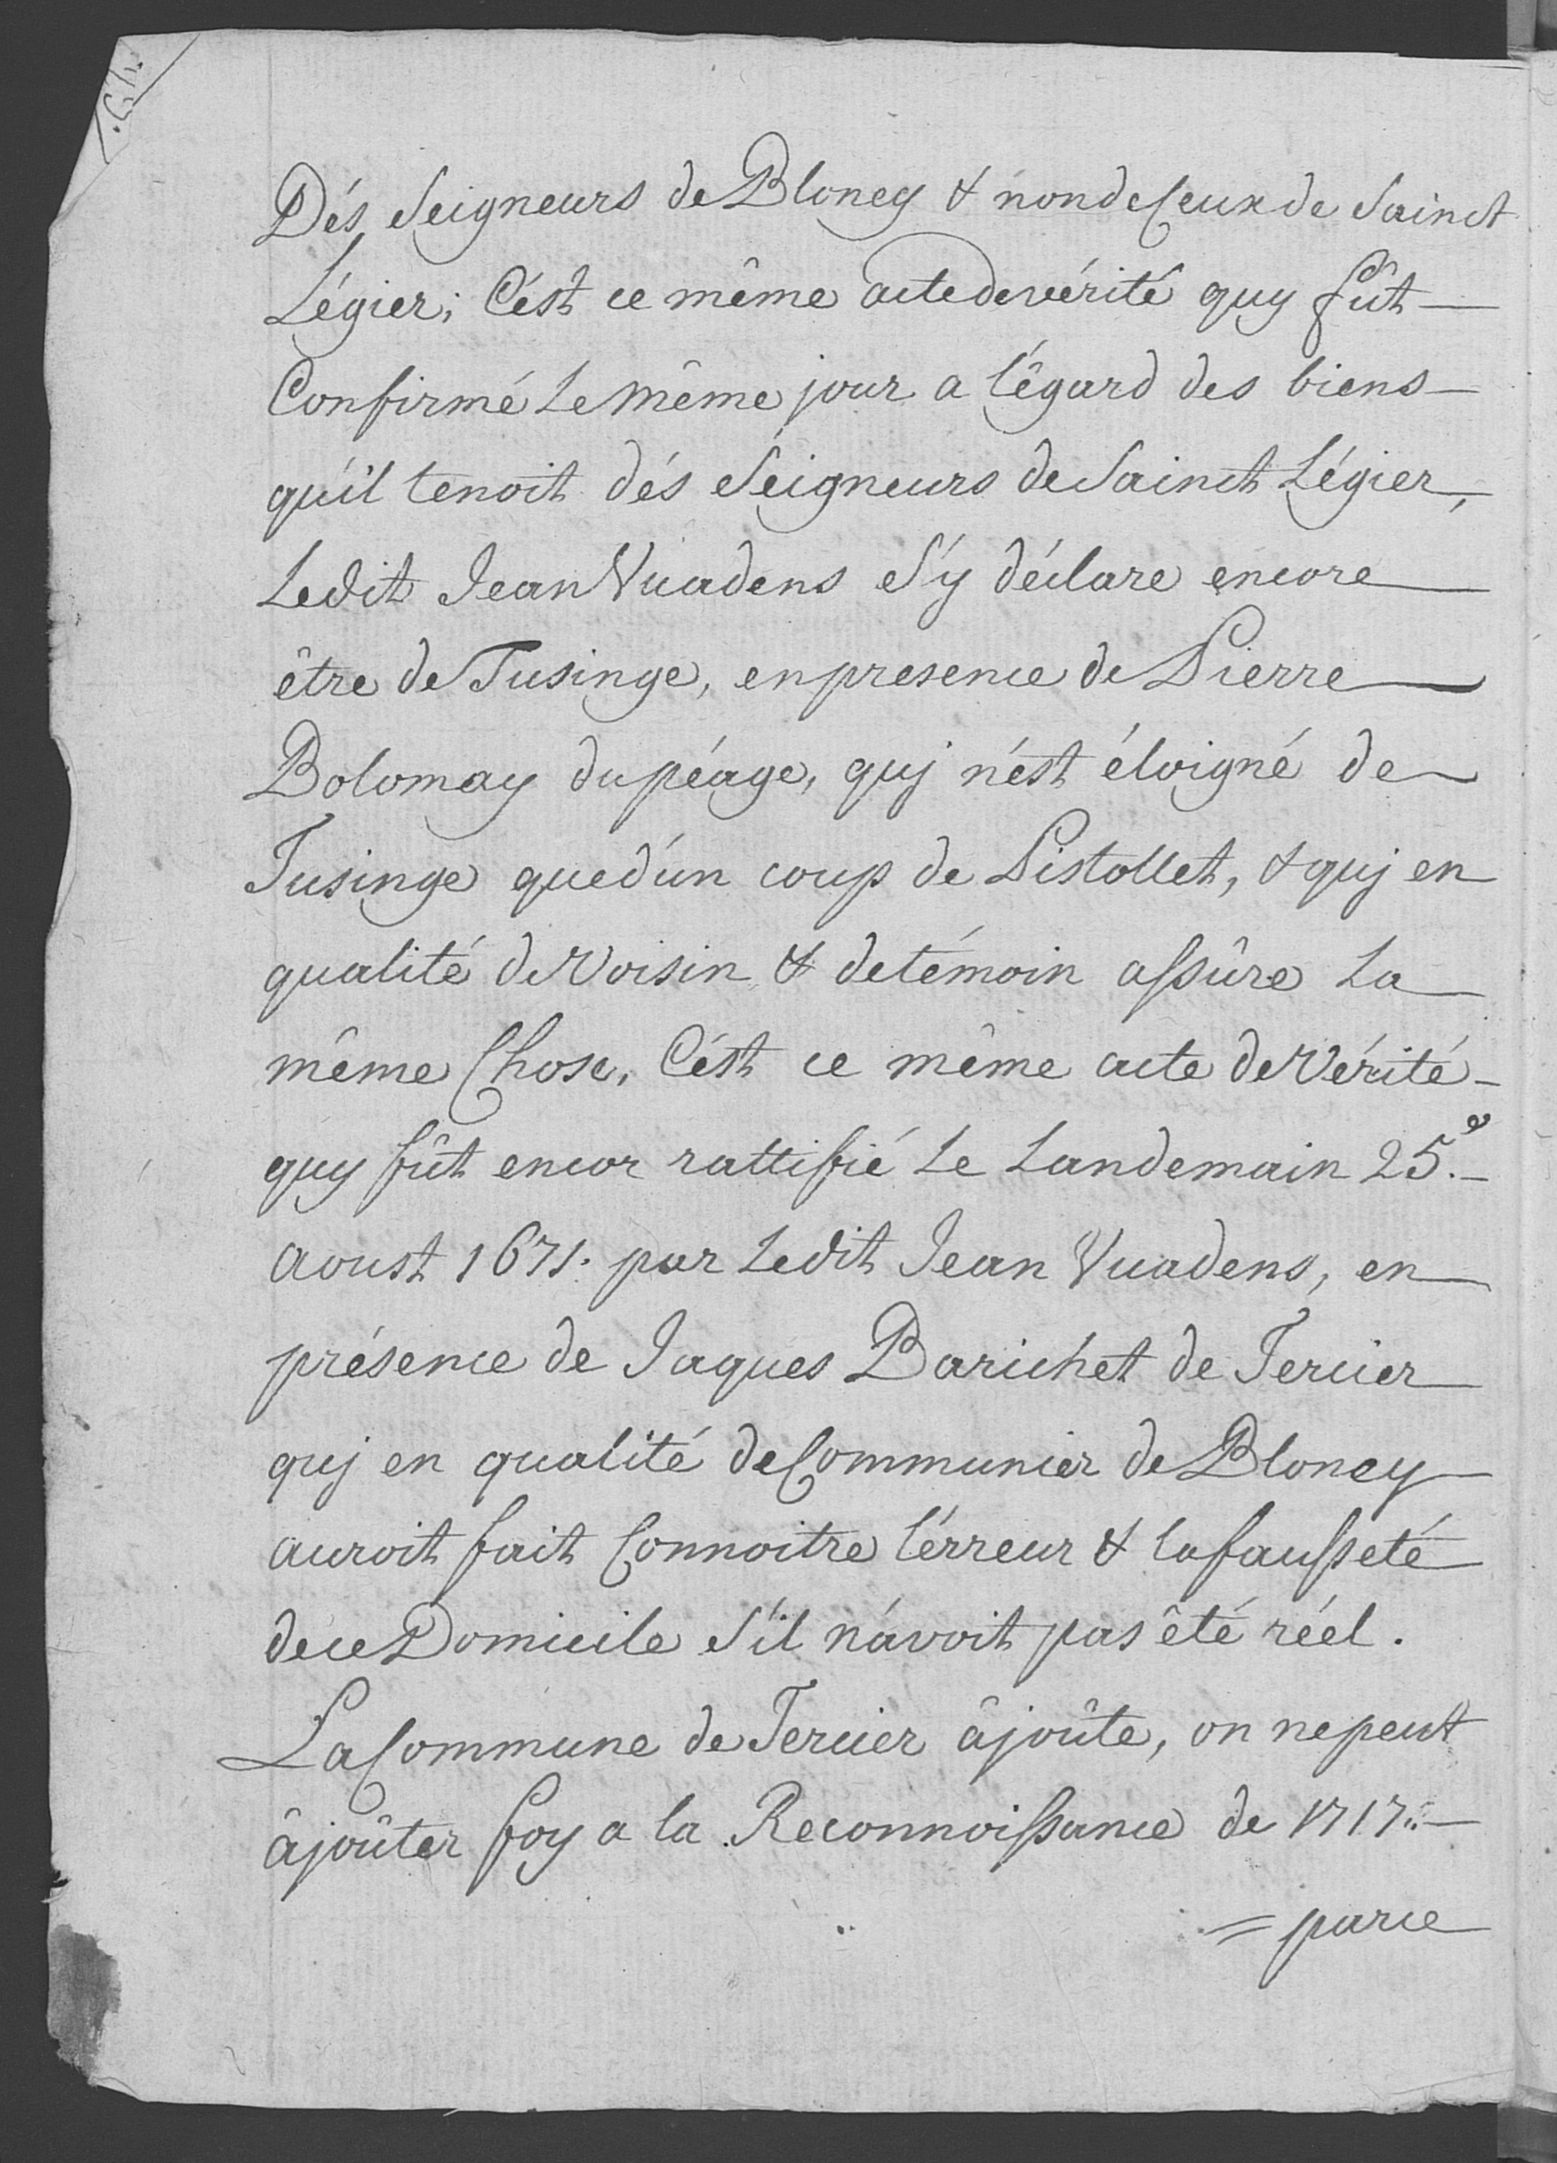 Dés Seigneurs de Bloney & non de Ceux de Sainct
Légier; C'ést ce même acte de vérité quy fût
Confirmé Le même jour a l'égard des biens
qu'il tenoit dés Séigneurs de Sainct Légier,
Ledit Jean Vuadens s'y déclare encore
être de Tusinge, en presence de Pierre
Bolomay du péage, quj n'ést éloigné de
Tusinge que d'un coup de Pistollet, & quj en
qualité de Voisin & de témoin assûre La
même Chose, C'ést ce même acte de Vérité
quy fût encor rattifié Le Landemain 25.e
aoust 1671. par Ledit Jean Vuadens, en
présence de Jaques Barichet de Tercier
quj en qualité de Communier de Bloney
auroit fait Connoitre l'érreur & la fausseté
de ce Domicile s'il n'avoit pas êté réel.
La Commune de Tercier âjoûte, on ne peut
âjoûter foy a la Reconnoissance de 1717.
= parce